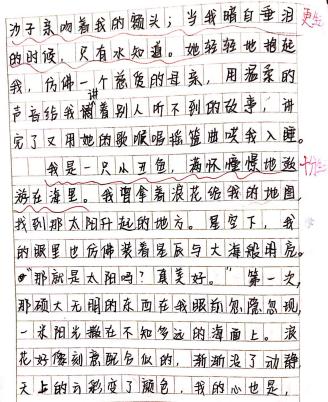 沙子亲吻着我的额头；当我暗自垂泪
的时候，只有水知道。她轻轻地抱起
我，仿佛一个慈爱的母亲，用温柔的
声音给我讲着别人听不到的故事，讲
完了又用她的歌喉唱摇篮曲哄我入睡。
我是一只小丑鱼，满怀憧憬地遨
游在海里。我要拿着浪花给我的地图，
找到那太阳升起的地方。星空下，我
的眼里也仿佛装着星辰与大海般明亮。
“那就是太阳吗？真美好。”第一次，
那硕大无朋的东西在我眼前忽隐忽现，
一米阳光撒在不知多远的海面上。浪
花好像刻意配合似的，渐渐没了动静
天上的云彩变了颜色，我的心也是，